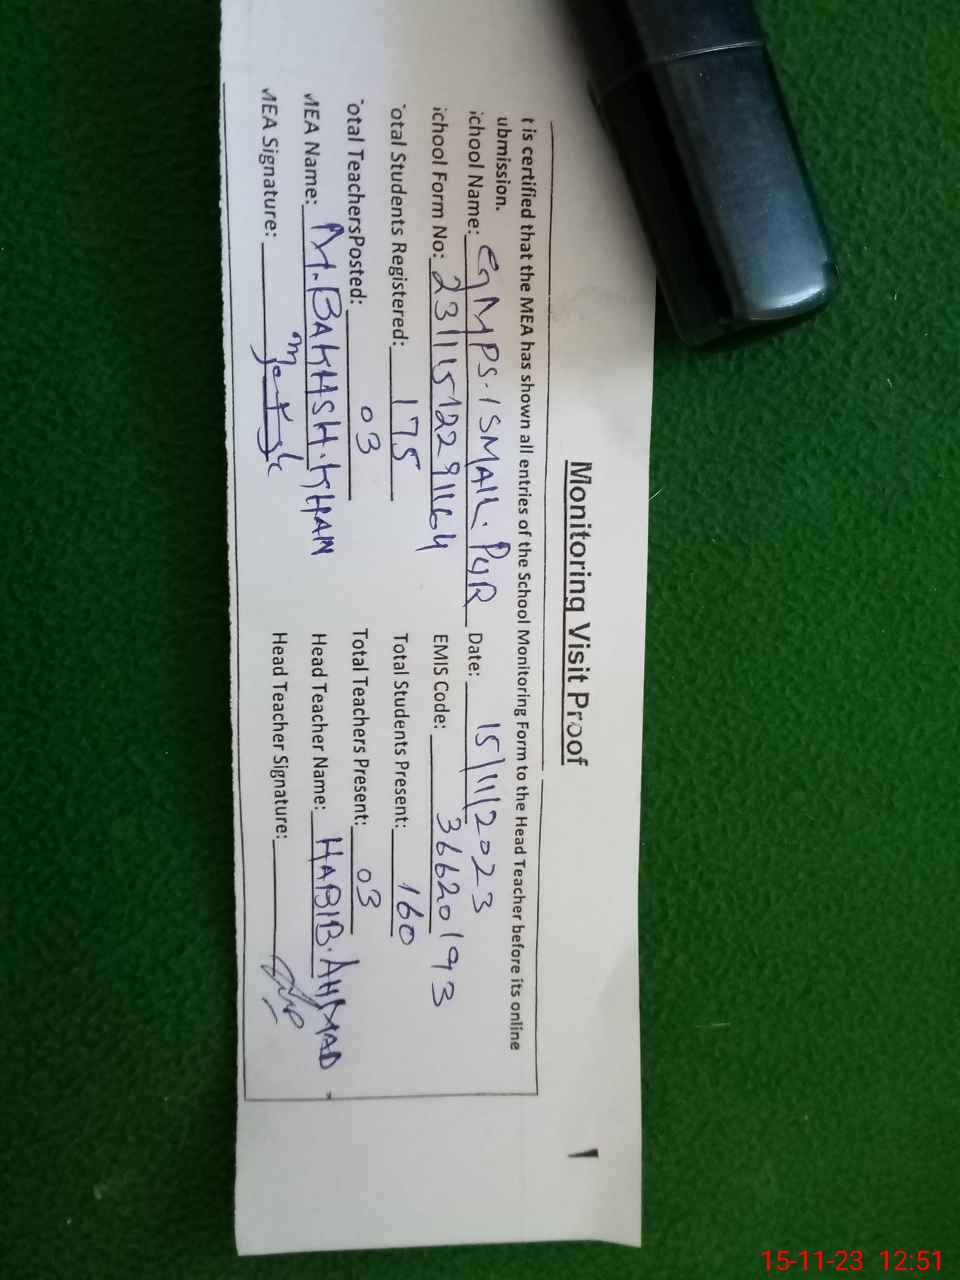 Monitoring Visit Proof
t is certified that the MEA has shown all entries of the School Monitoring Form to the Head Teacher before its online
ubmission.
ichool Name: GMPS. ISMAIL. PUR Date: 15/11/2023
ichool Form No: 23111512291164 EMIS Code: 36620193
otal Students Registered: 175 Total Students Present: 160
otal TeachersPosted: 03 Total Teachers Present: 03
MEA Name: M. BAKHSH. KHAN Head Teacher Name: HABIB. AHMAD
MEA Signature: Head Teacher Signature:
15-11-23 12:51